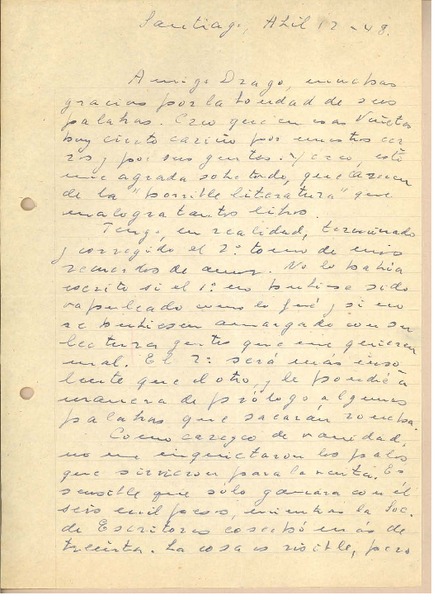 Santiago, Abil 12-48.
Amigo Drago, muchas
gracias por la bondad de sus
palabras. Creo que en esas viñetas
hay cierto cariño por nuestros ce-
rros y por sus gentes. Y creo, esto
me agrada sobre todo, que carecen
de la "posible literatura" que
malogra tantos libros.
Tengo, en realidad, terminado
y corregido el 2º tomo de mis
recuerdos de amor. No lo había
escrito si el 1º no hubiese sido
vapuleado como lo fué, y si no
se hubiesen amargado con su
lectura gentes que me quieren
mal. El 2º será más inso-
lente que el otro, y le pondré a
manera de prólogo algunas
palabras que sacarán roncha.
Como carezco de vanidad,
no me inquietaron los palos
que sirvieron para la venta. Es
sensible que sólo ganara con él
seis mil pesos, mientras la Soc.
de Escritores cosechó más de
treinta. La cosa es risible, pero